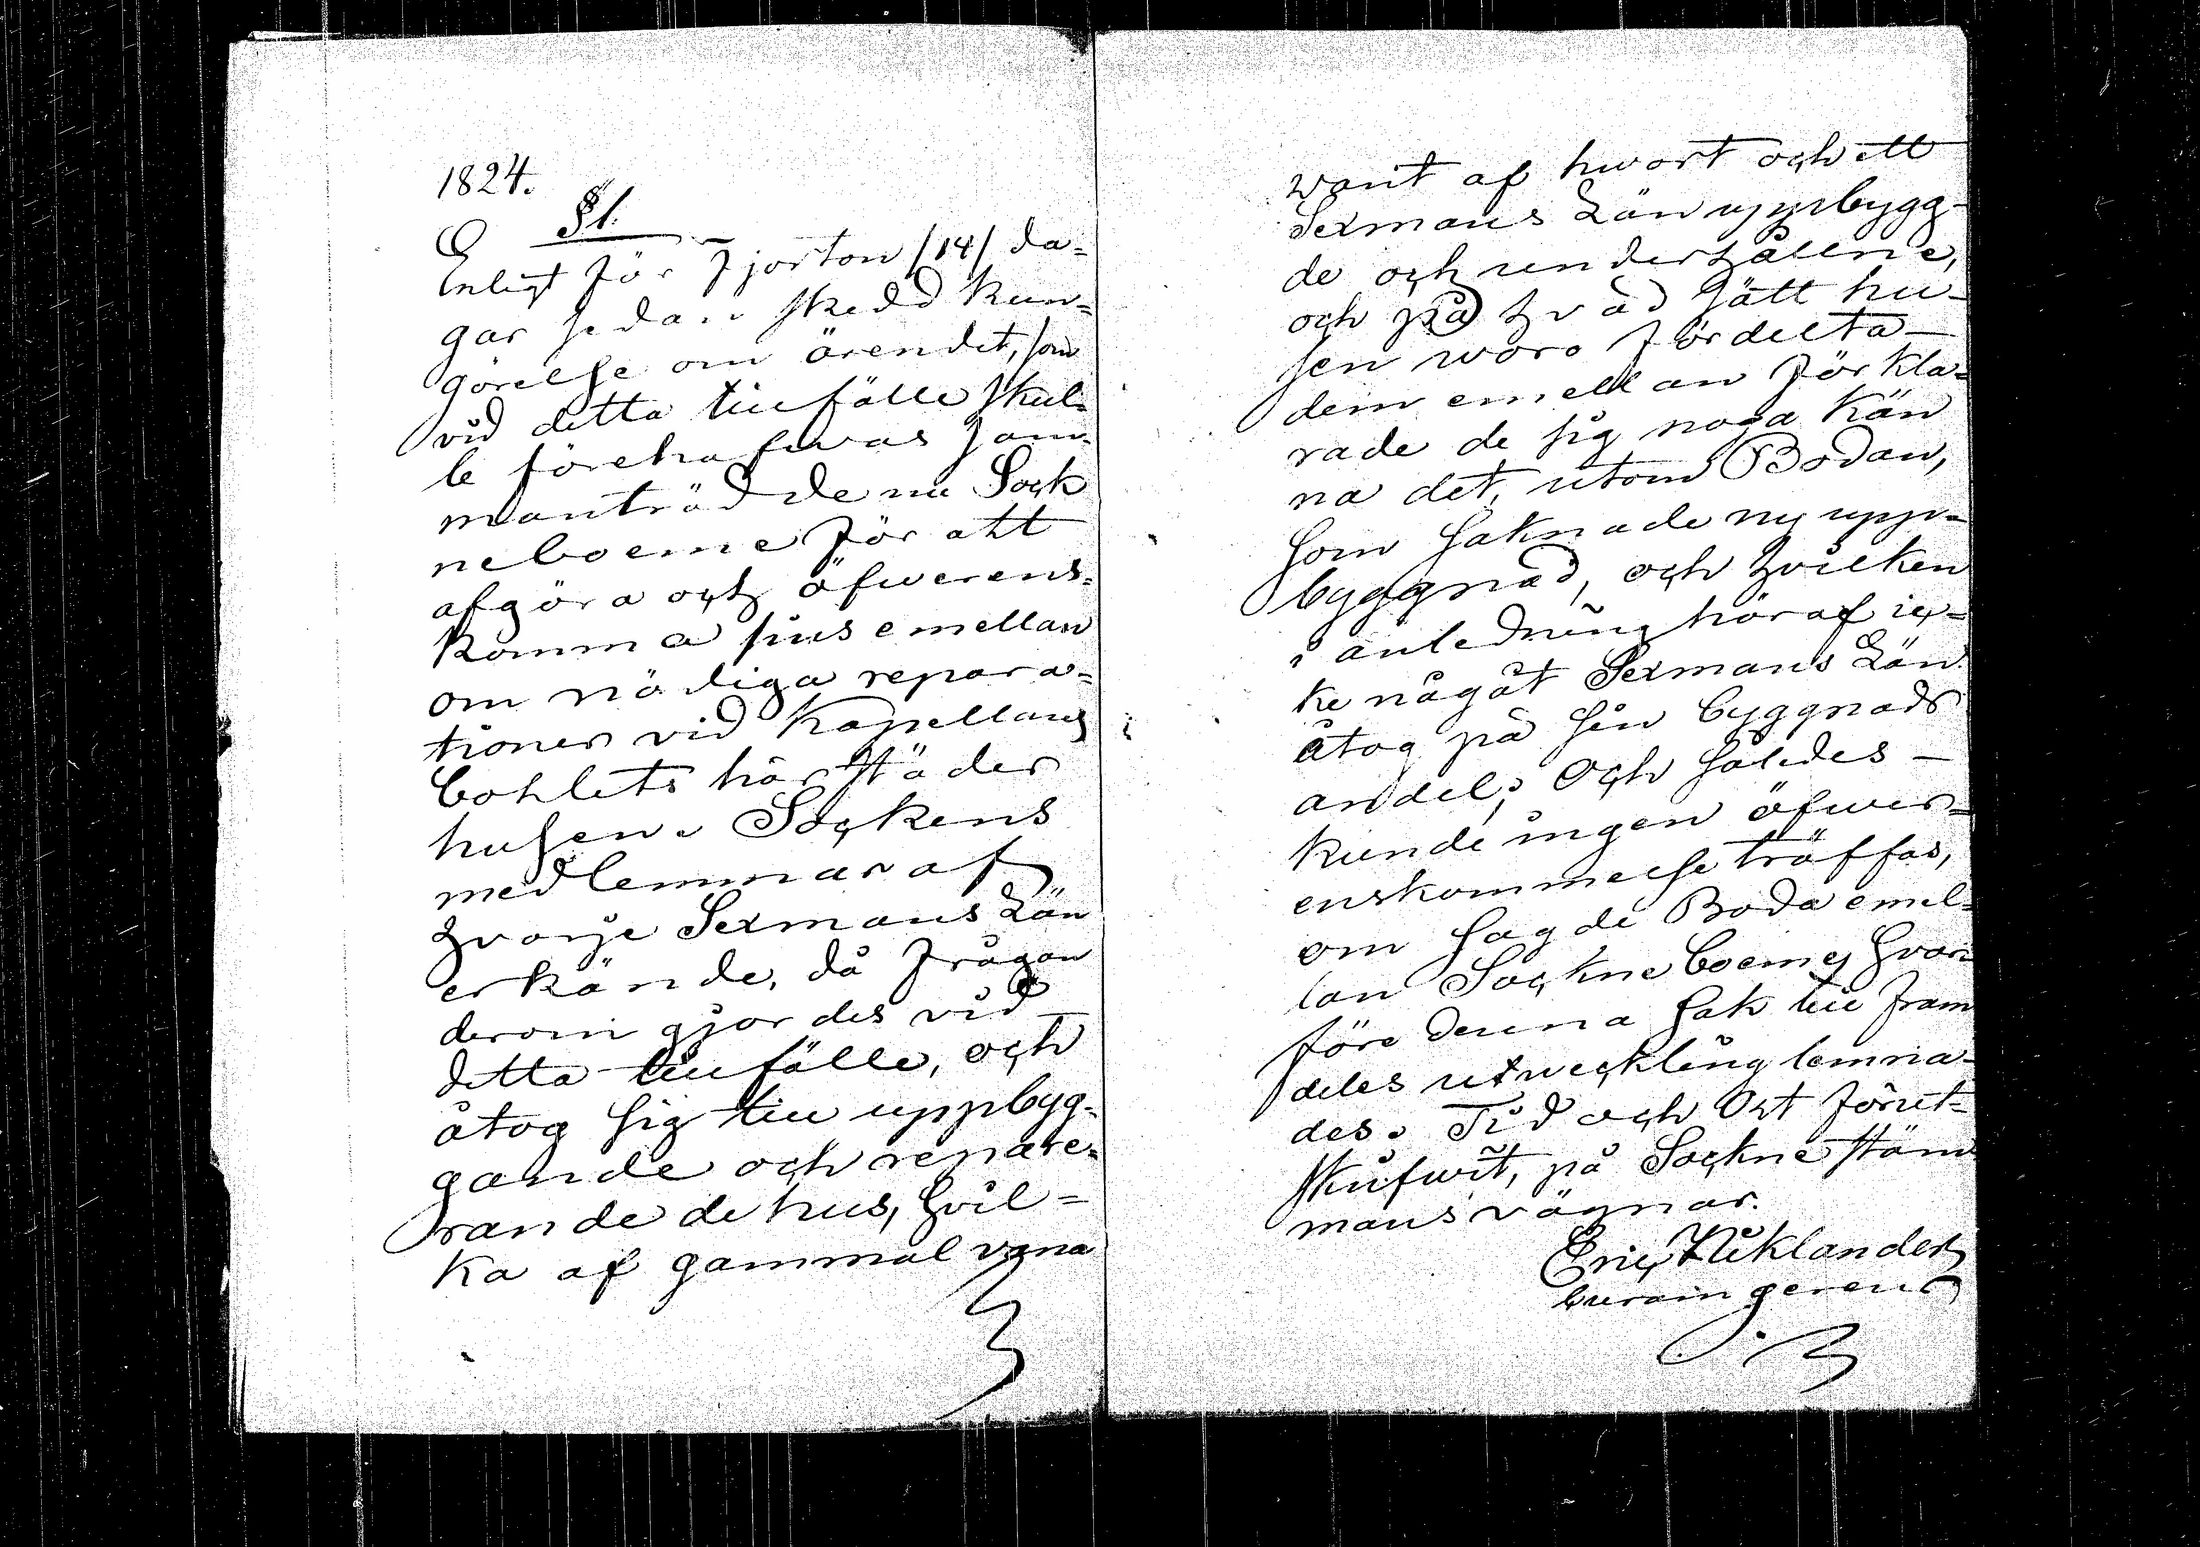 1824.
§1.
Enligt för Fjorton /14/ da=
gar sedan skedd kun=
görelse om ärendet, som
vid detta tillfälle skul=
le förehafwas sam=
manträdde nu Sock
neboerne för att
afgöra och öfwerens=
komma sins emellan
om nödiga repara=
tioner vid Kapellans
bohlets härstädes
husen. Sockens
medlemmar af
hvarje Sexmans Län
erkände, då frågan
derom gjordes vid
detta tillfälle, och
åtog sig till uppbyg=
gande och repare=
rande de hus, hvil=
ka af gammal vana
warit af hwart och ett
Sexmans Län uppbygg-
de och underhållne,
och på hvad sätt hu-
sen woro fördelta
dem emellan förkla=
rade de sig noga kän
na det, utom Bodan,
som saknade ny upp=
byggnad, och hvilken
i anledning häraf ic=
ke något Sexmans Län
åtog på sin byggnads
andel; Och således
kunde ingen öfwer=
enskommelse träffas,
om sagde Boda emel=
lan Sockneboerne, hvar
före denna sak till fram
deles utweckling lemna-
des. Tid och Ort förut=
skrifwit, på Sockne stäm
mans vägnar.
Eric Wiklander
curam gerens